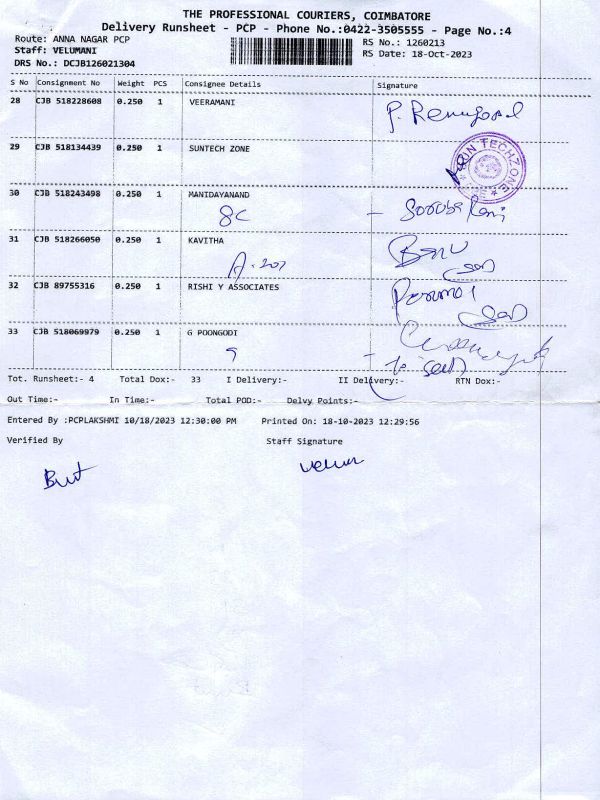 THE PROFESSIONAL COURIERS, COIMBATORE
Delivery Runsheet - PCP - Phone No.:0422-3505555 - Page No.:4
Route: ANNA NAGAR PCP
RS No.: 1260213
Staff: VELUMANI
RS Date: 18-Oct-2023
DRS No.: DCJB126021304
S No Consignment No Weight PCS Consignee Details Signature
28 CJB 518228608 0.250 1 VEERAMANI
29 CJB 518134439 0.250 1 SUNTECH ZONE
30 CJB 518243498 0.250 1 MANIDAYANAND
8C
31 CJB 518266050 0.250 1 KAVITHA
32 CJB 89755316 0.250 1 RISHI Y ASSOCIATES
33 CJB 518069979 0.250 1 G POONGODI
Tot. Runsheet:- 4 Total Dox:- 33 I Delivery:- II Delivery:- RTN Dox:-
Out Time:- In Time:- Total POD:- Delvy Points:-
Entered By :PCPLAKSHMI 10/18/2023 12:30:00 PM Printed On: 18-10-2023 12:29:56
Verified By Staff Signature